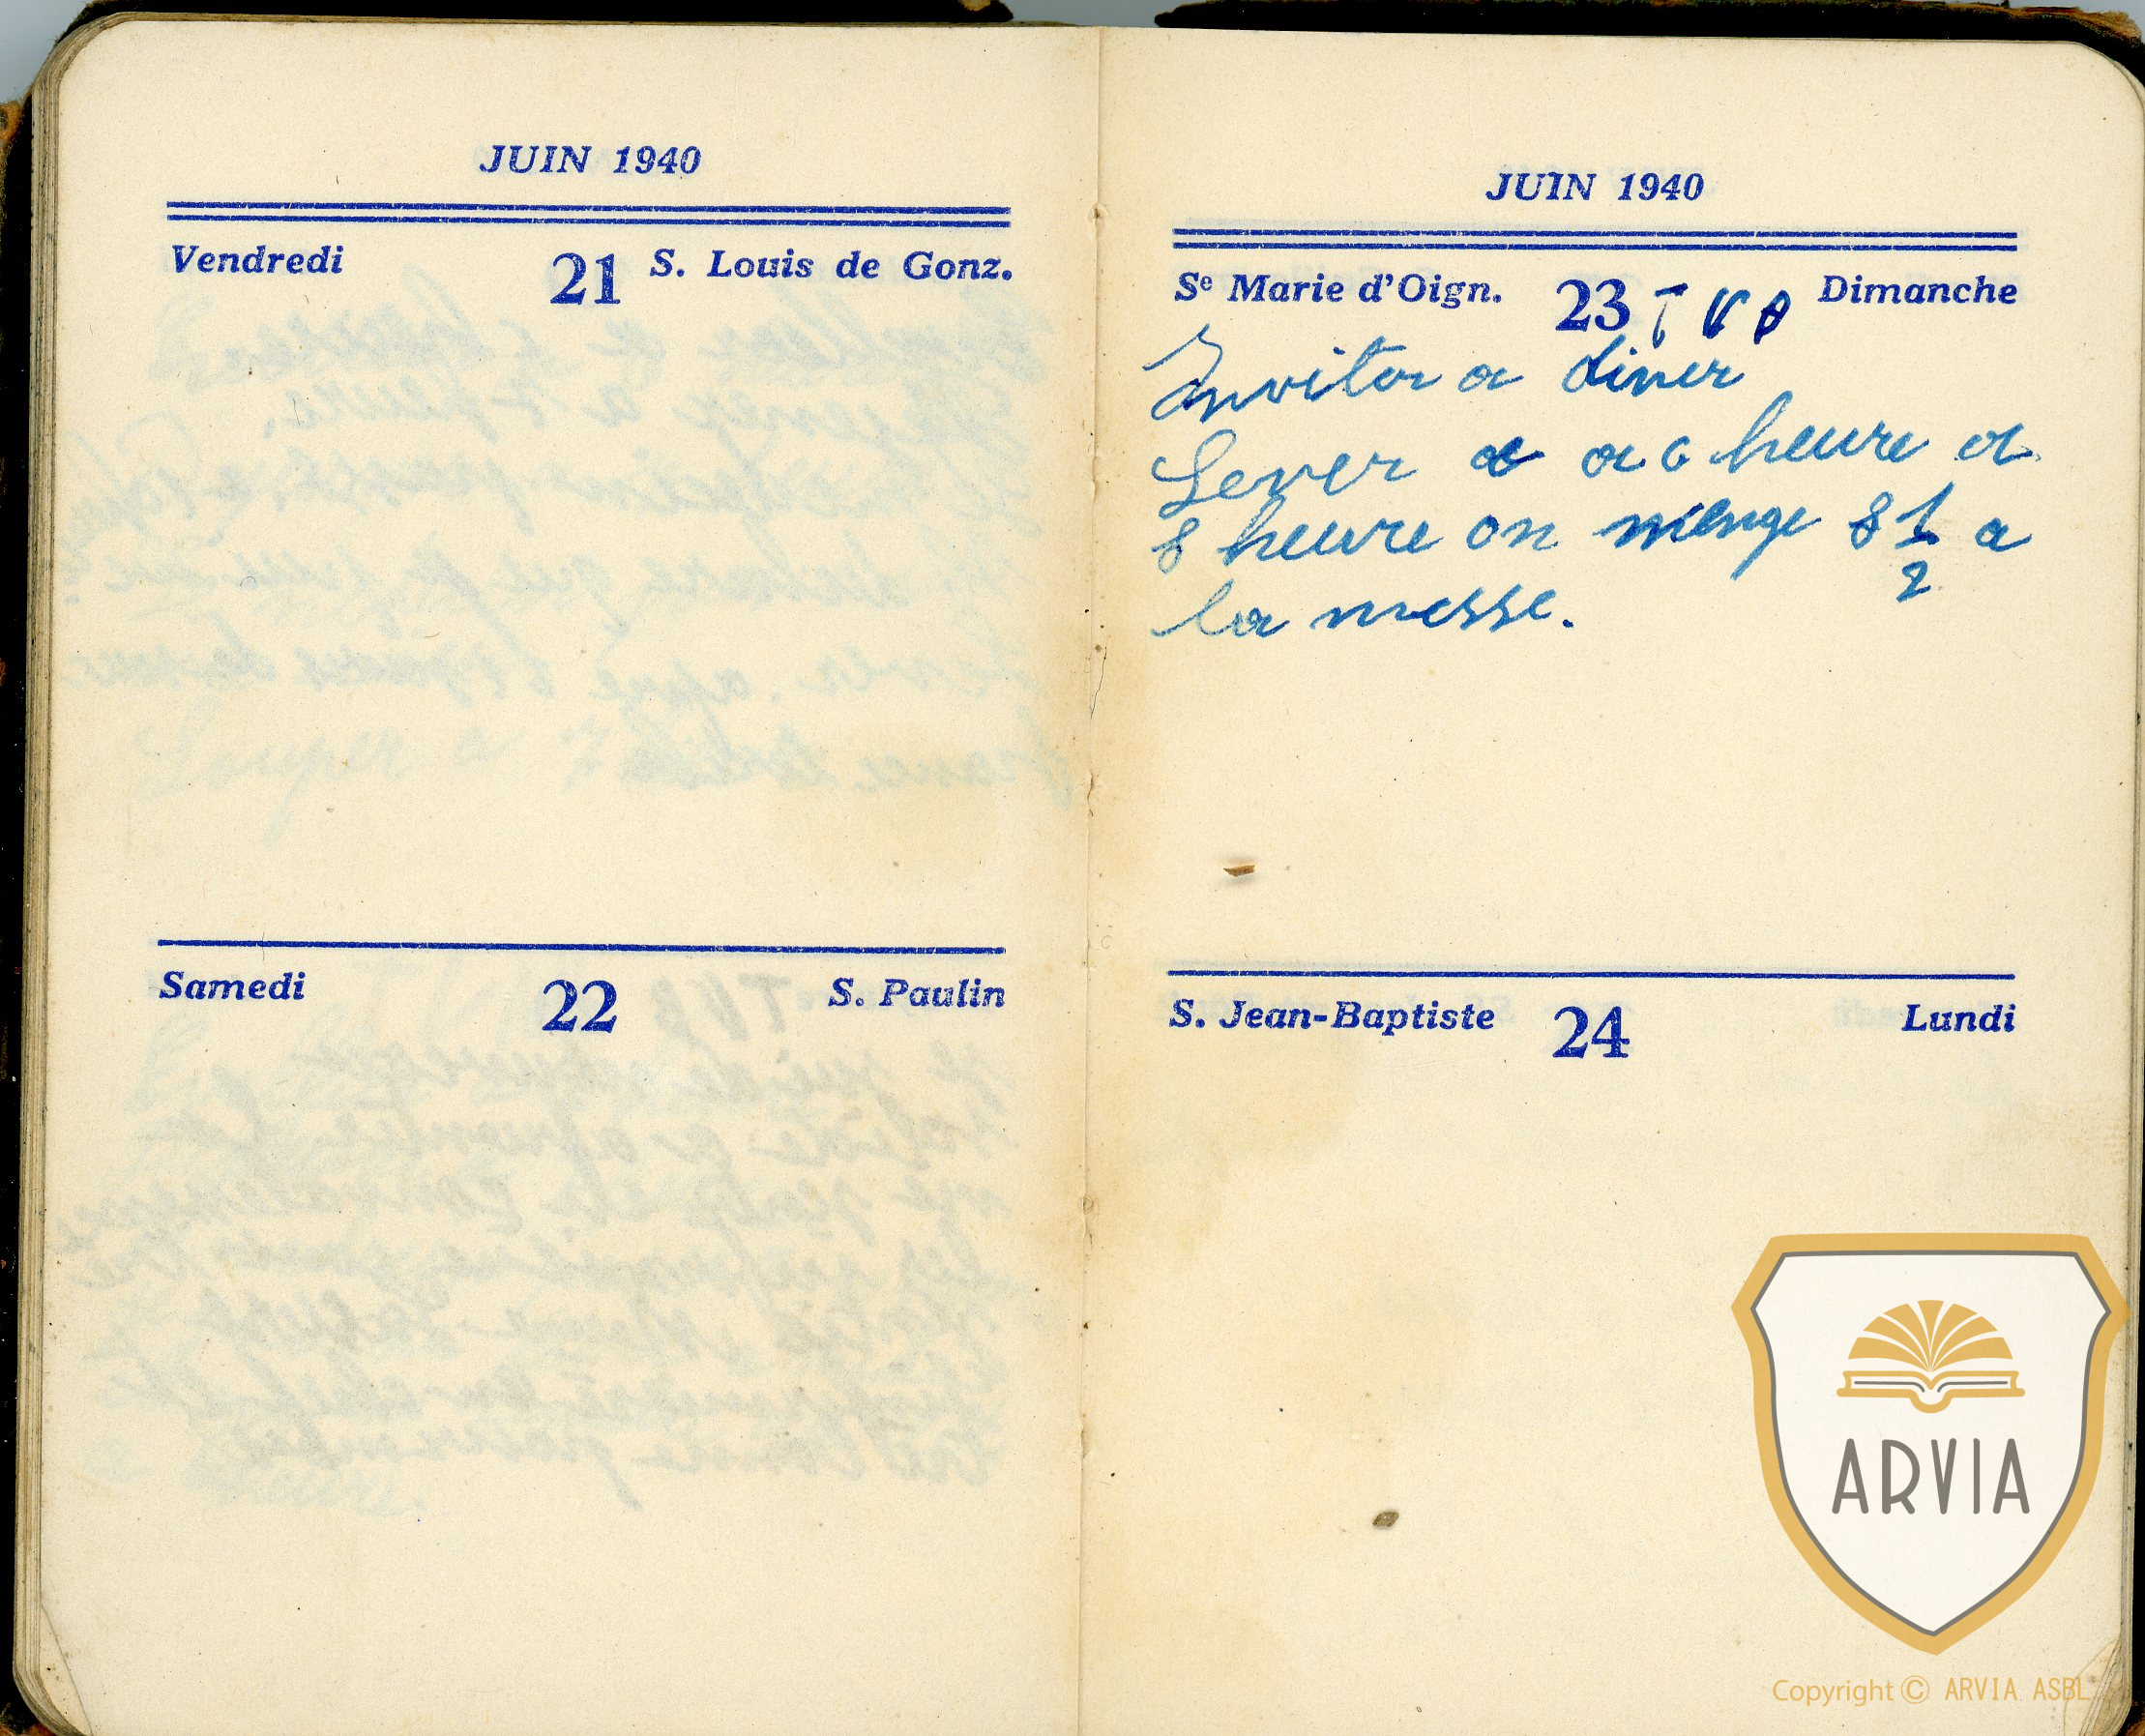 JUIN 1940
Vendredi 21 S. Louis de Gonz.
Samedi 22 S. Paulin
JUIN 1940
Se Marie d'Oign. 23 T V B Dimanche
Inviter a diner
Lever a a 6 heure a
8 heure on mange 8 1/2 a
la messe.
S. Jean-Baptiste 24 Lundi
ARVIA
Copyright © ARVIA ASBL